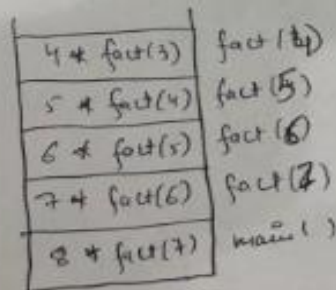 4 * fact(3) fact(4)
5 * fact(4) fact(5)
6 * fact(5) fact(6)
7 * fact(6) fact(7)
8 * fact(7) main()